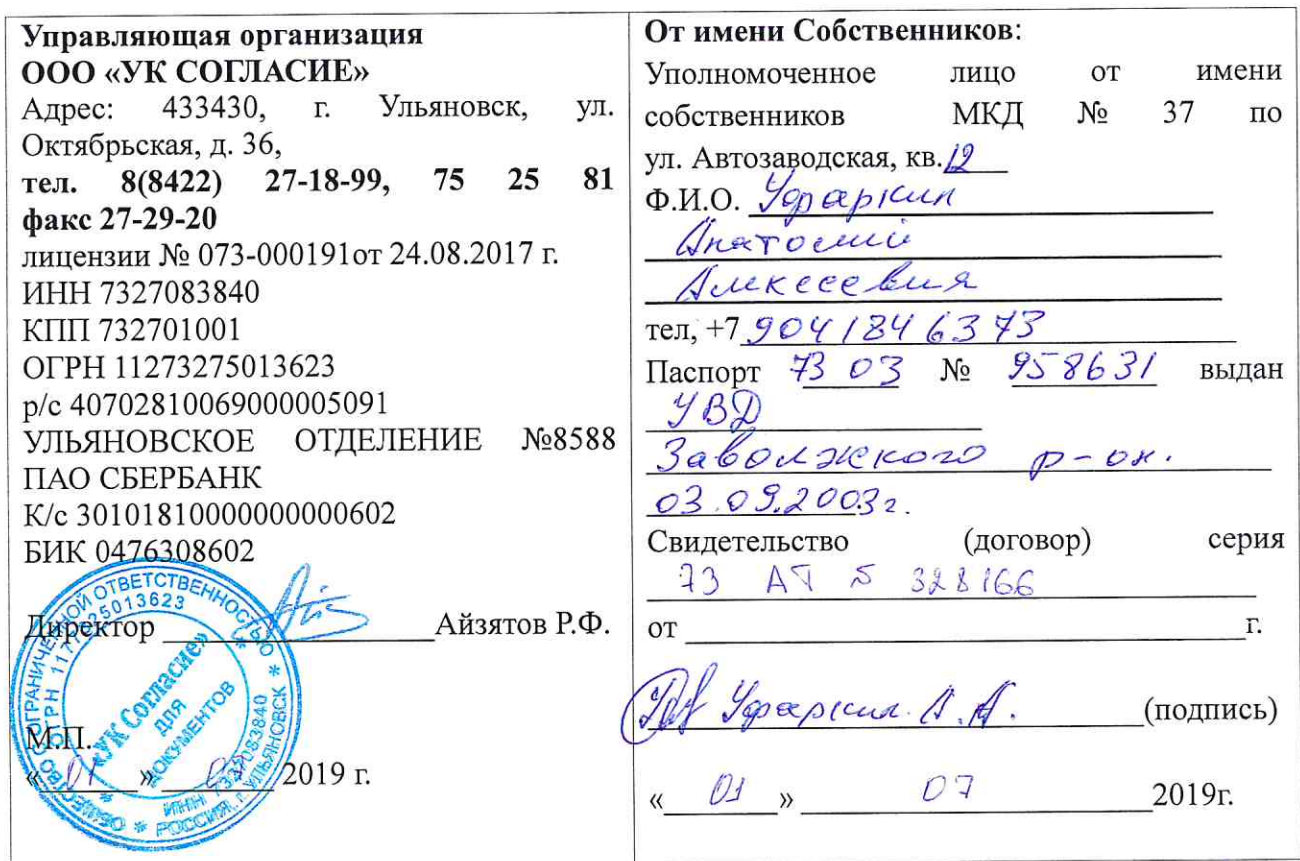 Управляющая организация
ООО «УК СОГЛАСИЕ»
Адрес: 433430, г. Ульяновск, ул.
Октябрьская, д. 36,
тел. 8(8422) 27-18-99, 75 25 81
факс 27-29-20
лицензии № 073-000191от 24.08.2017 г.
ИНН 7327083840
КПП 732701001
ОГРН 11273275013623
р/с 40702810069000005091
УЛЬЯНОВСКОЕ ОТДЕЛЕНИЕ №8588
ПАО СБЕРБАНК
К/с 30101810000000000602
БИК 0476308602
Директор ______ Айзятов Р.Ф.
М.П.
« 01 » 07 2019 г.
ОБЩЕСТВО С ОГРАНИЧЕННОЙ ОТВЕТСТВЕННОСТЬЮ
«УК Согласие»
ДЛЯ
ДОКУМЕНТОВ
ИНН 7327083840
РОССИЯ, г. УЛЬЯНОВСК
От имени Собственников:
Уполномоченное лицо от имени
собственников МКД № 37 по
ул. Автозаводская, кв. 12
Ф.И.О.
Анатолий
Алексеевич
тел, +7 9041846373
Паспорт 73 03 № 958631 выдан
УВД
Заволжского р-он.
03.09.2003г.
Свидетельство (договор) серия
73 АТ 328166
от ______ г.
А.А. (подпись)
« 01 » 07 2019г.